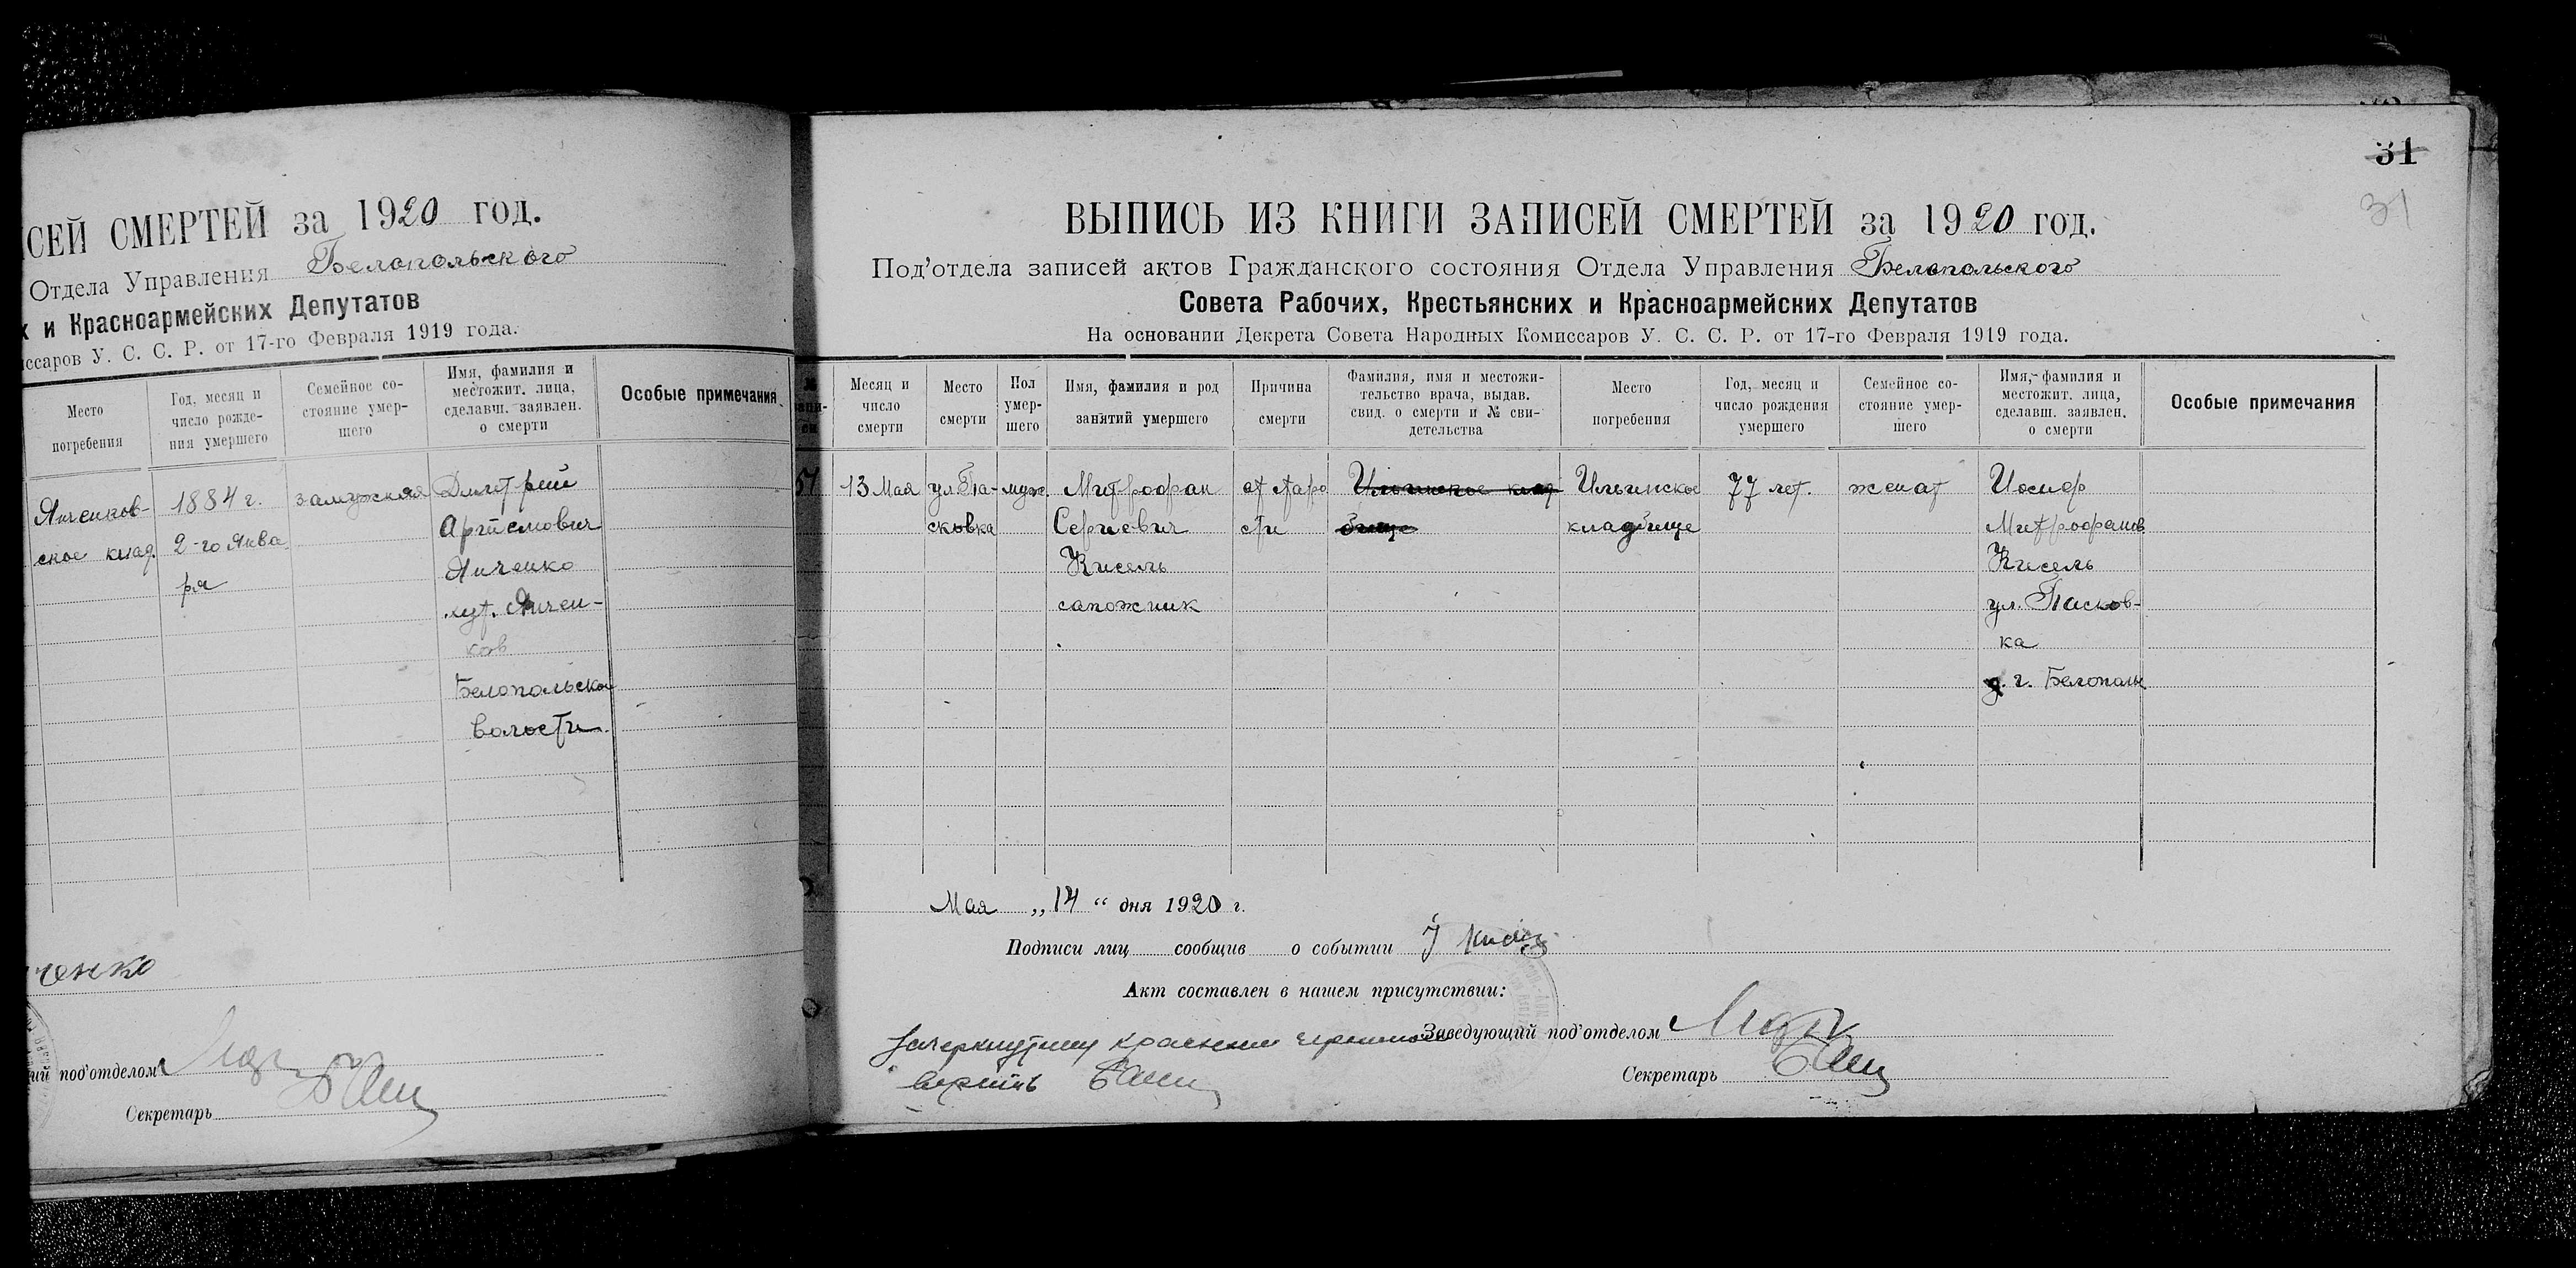 СЕЙ СМЕРТЕЙ за 1920 год.
Отдела Управления Белопольского
х и Красноармейских Депутатов
иссаров У. С. С. Р. от 17-го Февраля 1919 года.
Место
погребения
Год, месяц и
число рожде-
ния умершего
Семейное со-
стояние умер-
шего
Имя, фамилия и
местожит. лица,
сделавш. заявлен.
о смерти
Особые примечания
Янченков-
ское клад.
1884 г.
2-го Янва-
ря
замужняя
Дмитрий
Артемович
Янченко
хут. Янчен-
ков
Белопольской
волости
ченко
ий под'отделом
Секретарь
31
31
ВЫПИСЬ ИЗ КНИГИ ЗАПИСЕЙ СМЕРТЕЙ за 1920 год.
Под'отдела записей актов Гражданского состояния Отдела Управления Белопольского
Совета Рабочих, Крестьянских и Красноармейских Депутатов
На основании Декрета Совета Народных Комиссаров У. С. С. Р. от 17-го Февраля 1919 года.
№
запи-
си
Месяц и
число
смерти
Место
смерти
Пол
умер-
шего
Имя, фамилия и род
занятий умершего
Причина
смерти
Фамилия, имя и местожи-
тельство врача, выдав.
свид. о смерти и № сви-
детельства
Место
погребения
Год, месяц и
число рождения
умершего
Семейное со-
стояние умер-
шего
Имя, фамилия и
местожит. лица,
сделавш. заявлен.
о смерти
Особые примечания
57
13 Мая
ул. Па-
сковка
муж.
Митрофан
Сергиевич
Кисель
сапожник
от старо
сти
Ильинское клад
бище
Ильинское
кладбище
77 лет.
женат
Иосиф
Митрофанов
Кисель
ул. Пасков-
ка
г. Белополье
Мая „14“ дня 1920 г.
Подписи лиц сообщив о событии
Акт составлен в нашем присутствии:
Заведующий под'отделом
Зачеркнутому красными чернилами
верить
Секретарь